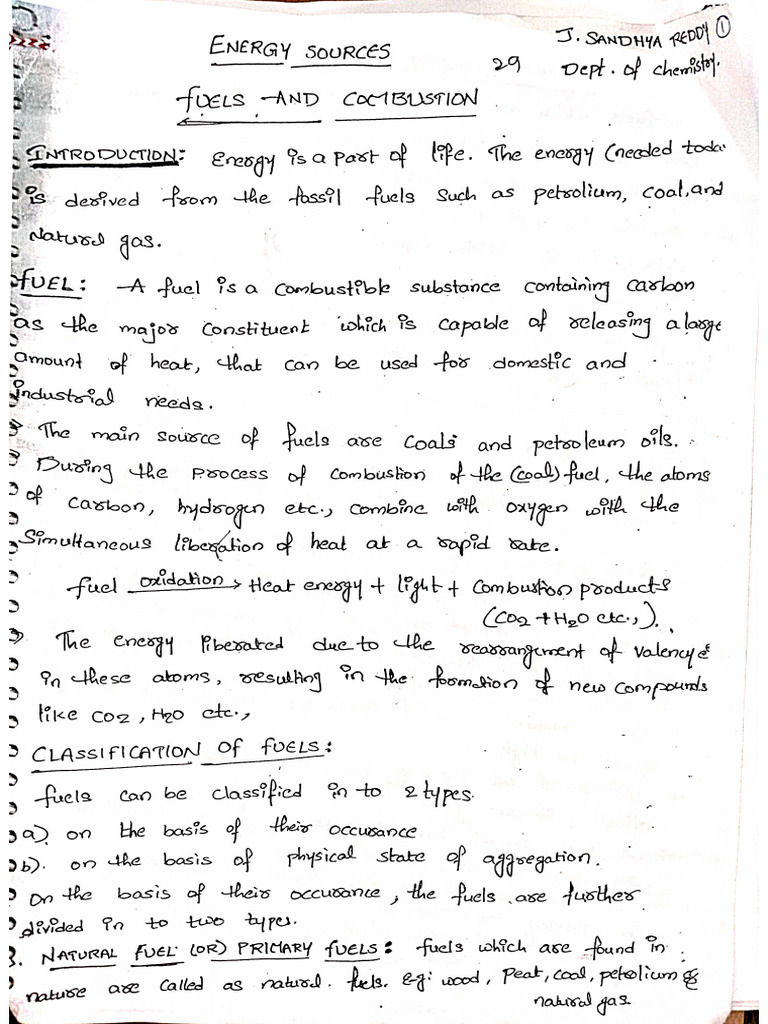 J. SANDHYA REDDY 1
ENERGY SOURCES
29
Dept. of chemistry.
FUELS AND COMBUSTION
INTRODUCTION: Energy is a part of life. The energy (needed toda
is derived from the fossil fuels such as petrolium, coal, and
Natural gas.
FUEL: A fuel is a combustible substance containing carbon
as the major constituent which is capable of releasing a large
amount of heat, that can be used for domestic and
industrial needs.
The main source of fuels are coals and petroleum oils.
During the process of combustion of the (coal) fuel, the atoms
of carbon, hydrogen etc., combine with oxygen with the
Simultaneous liberation of heat at a rapid rate.
fuel oxidation → Heat energy + light + Combustion products
(CO2 + H2O etc.,).
The energy liberated due to the rearrangement of valency e
in these atoms, resulting in the formation of new compounds
like CO2, H2O etc.,
CLASSIFICATION OF FUELS:
fuels can be classified in to 2 types.
a) on the basis of their occurance
b). on the basis of physical state of aggregation.
On the basis of their occurance, the fuels are further
divided in to two types.
NATURAL FUEL (OR) PRIMARY FUELS: fuels which are found in
nature are called as natural. fuels. e.g: wood, peat, coal, petrolium &
natural gas